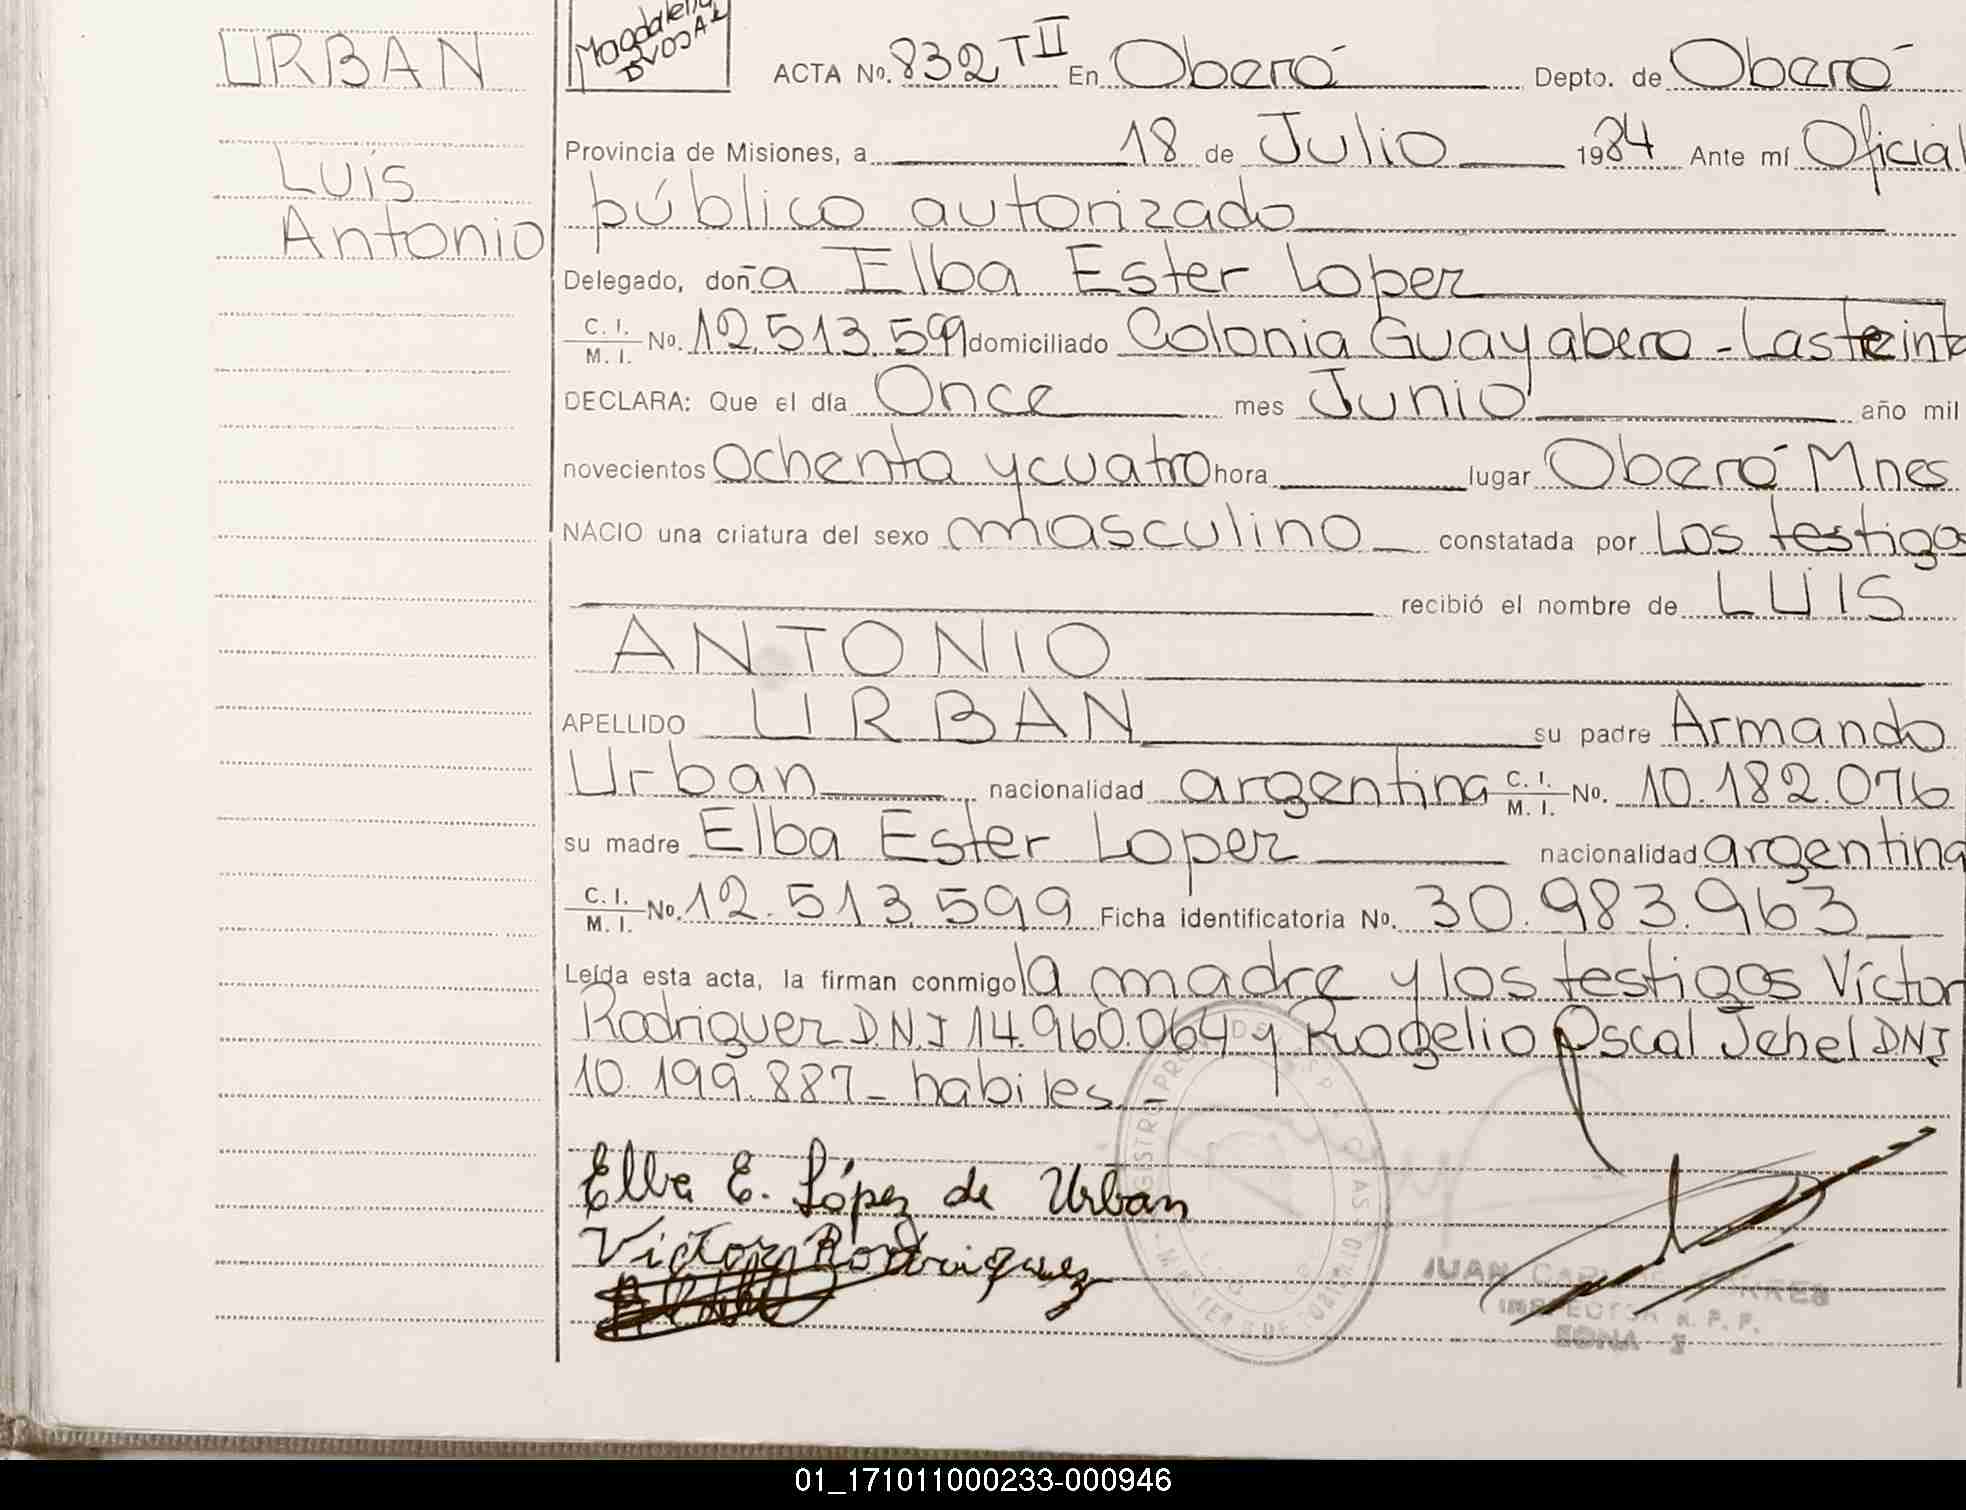 URBAN
Luis
Antonio
Magdalena
DVOJAK
ACTA No. 832 T II En Oberá Depto. de Oberá
Provincia de Misiones, a 18 de Julio 1984 Ante mí Oficial
público autorizado
Delegado, doña Elba Ester Lopez
C. I. / M. I. No. 12.513.599 domiciliado Colonia Guayabera - Las treinta
DECLARA: Que el día Once mes Junio año mil
novecientos Ochenta y cuatro hora lugar Oberá Mnes
NACIO una criatura del sexo masculino constatada por Los testigos
recibió el nombre de LUIS
ANTONIO
APELLIDO URBAN su padre Armando
Urban nacionalidad argentina C. I. / M. I. No. 10.182.076
su madre Elba Ester Lopez nacionalidad argentina
C. I. / M. I. No. 12.513.599 Ficha identificatoria No. 30.983.963
Leída esta acta, la firman conmigo la madre y los testigos Víctor
Rodriguez D.N.I 14.960.064 y Rogelio Oscal Jehel DNI
10.199.887 - habiles. -
Elba E. López de Urban
Victor Rodriguez
JUAN
INSPECTOR R. P. P.
ZONA
01_171011000233-000946